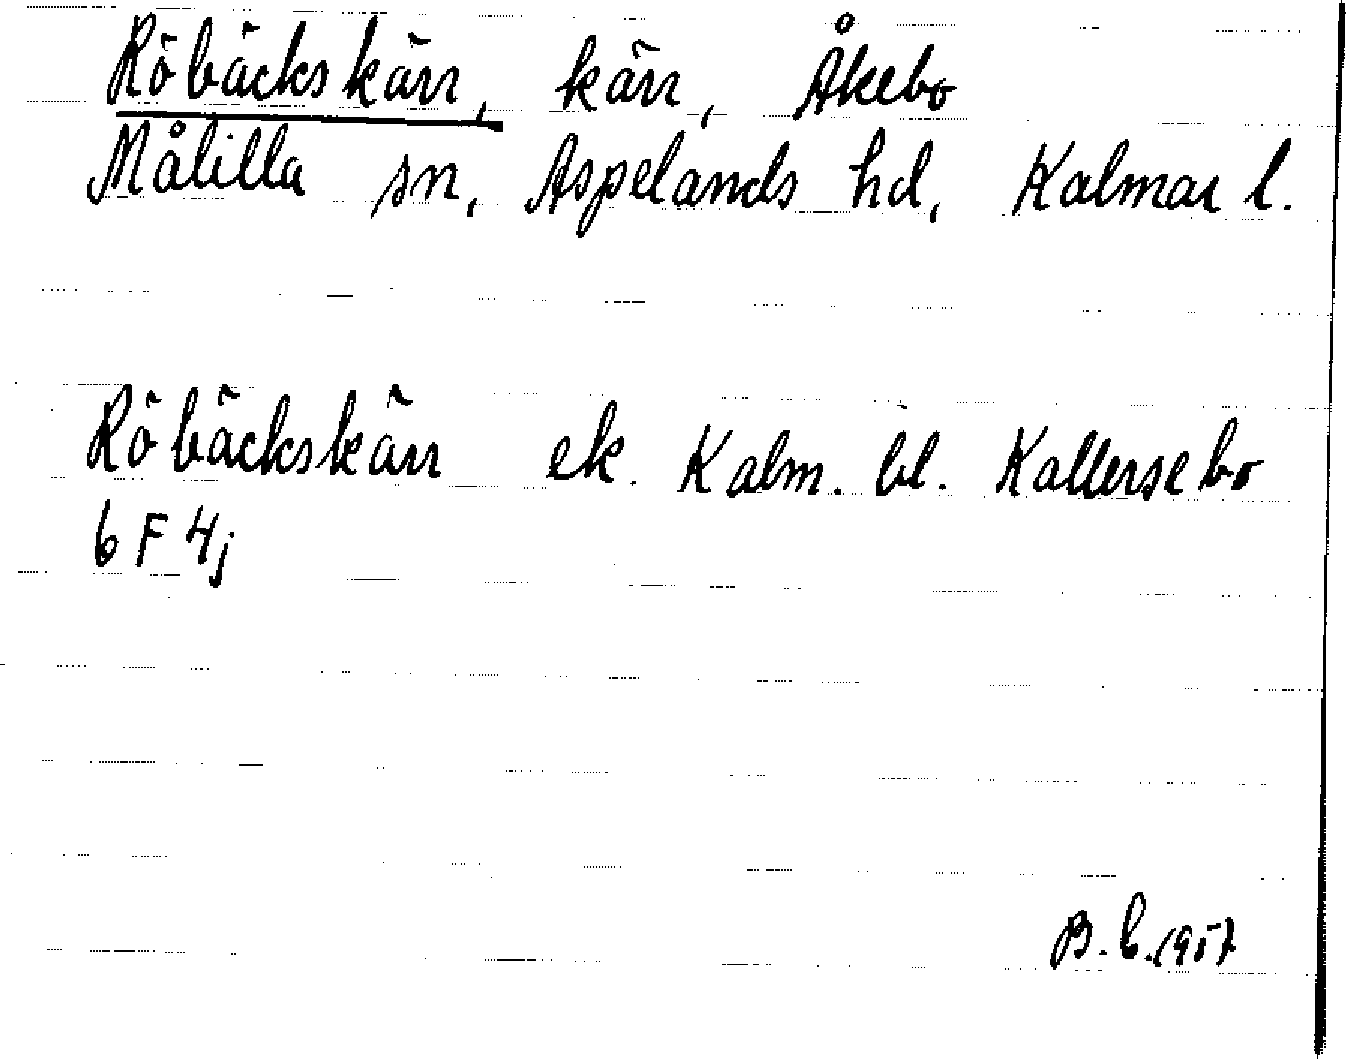 Röbäckskärr, kärr, Åkebo
Målilla sn, Aspelands hd, Kalmar l.
Röbäckskärr ek. Kalm. bl. Kallersebo
6 F 4j
B.C.1957